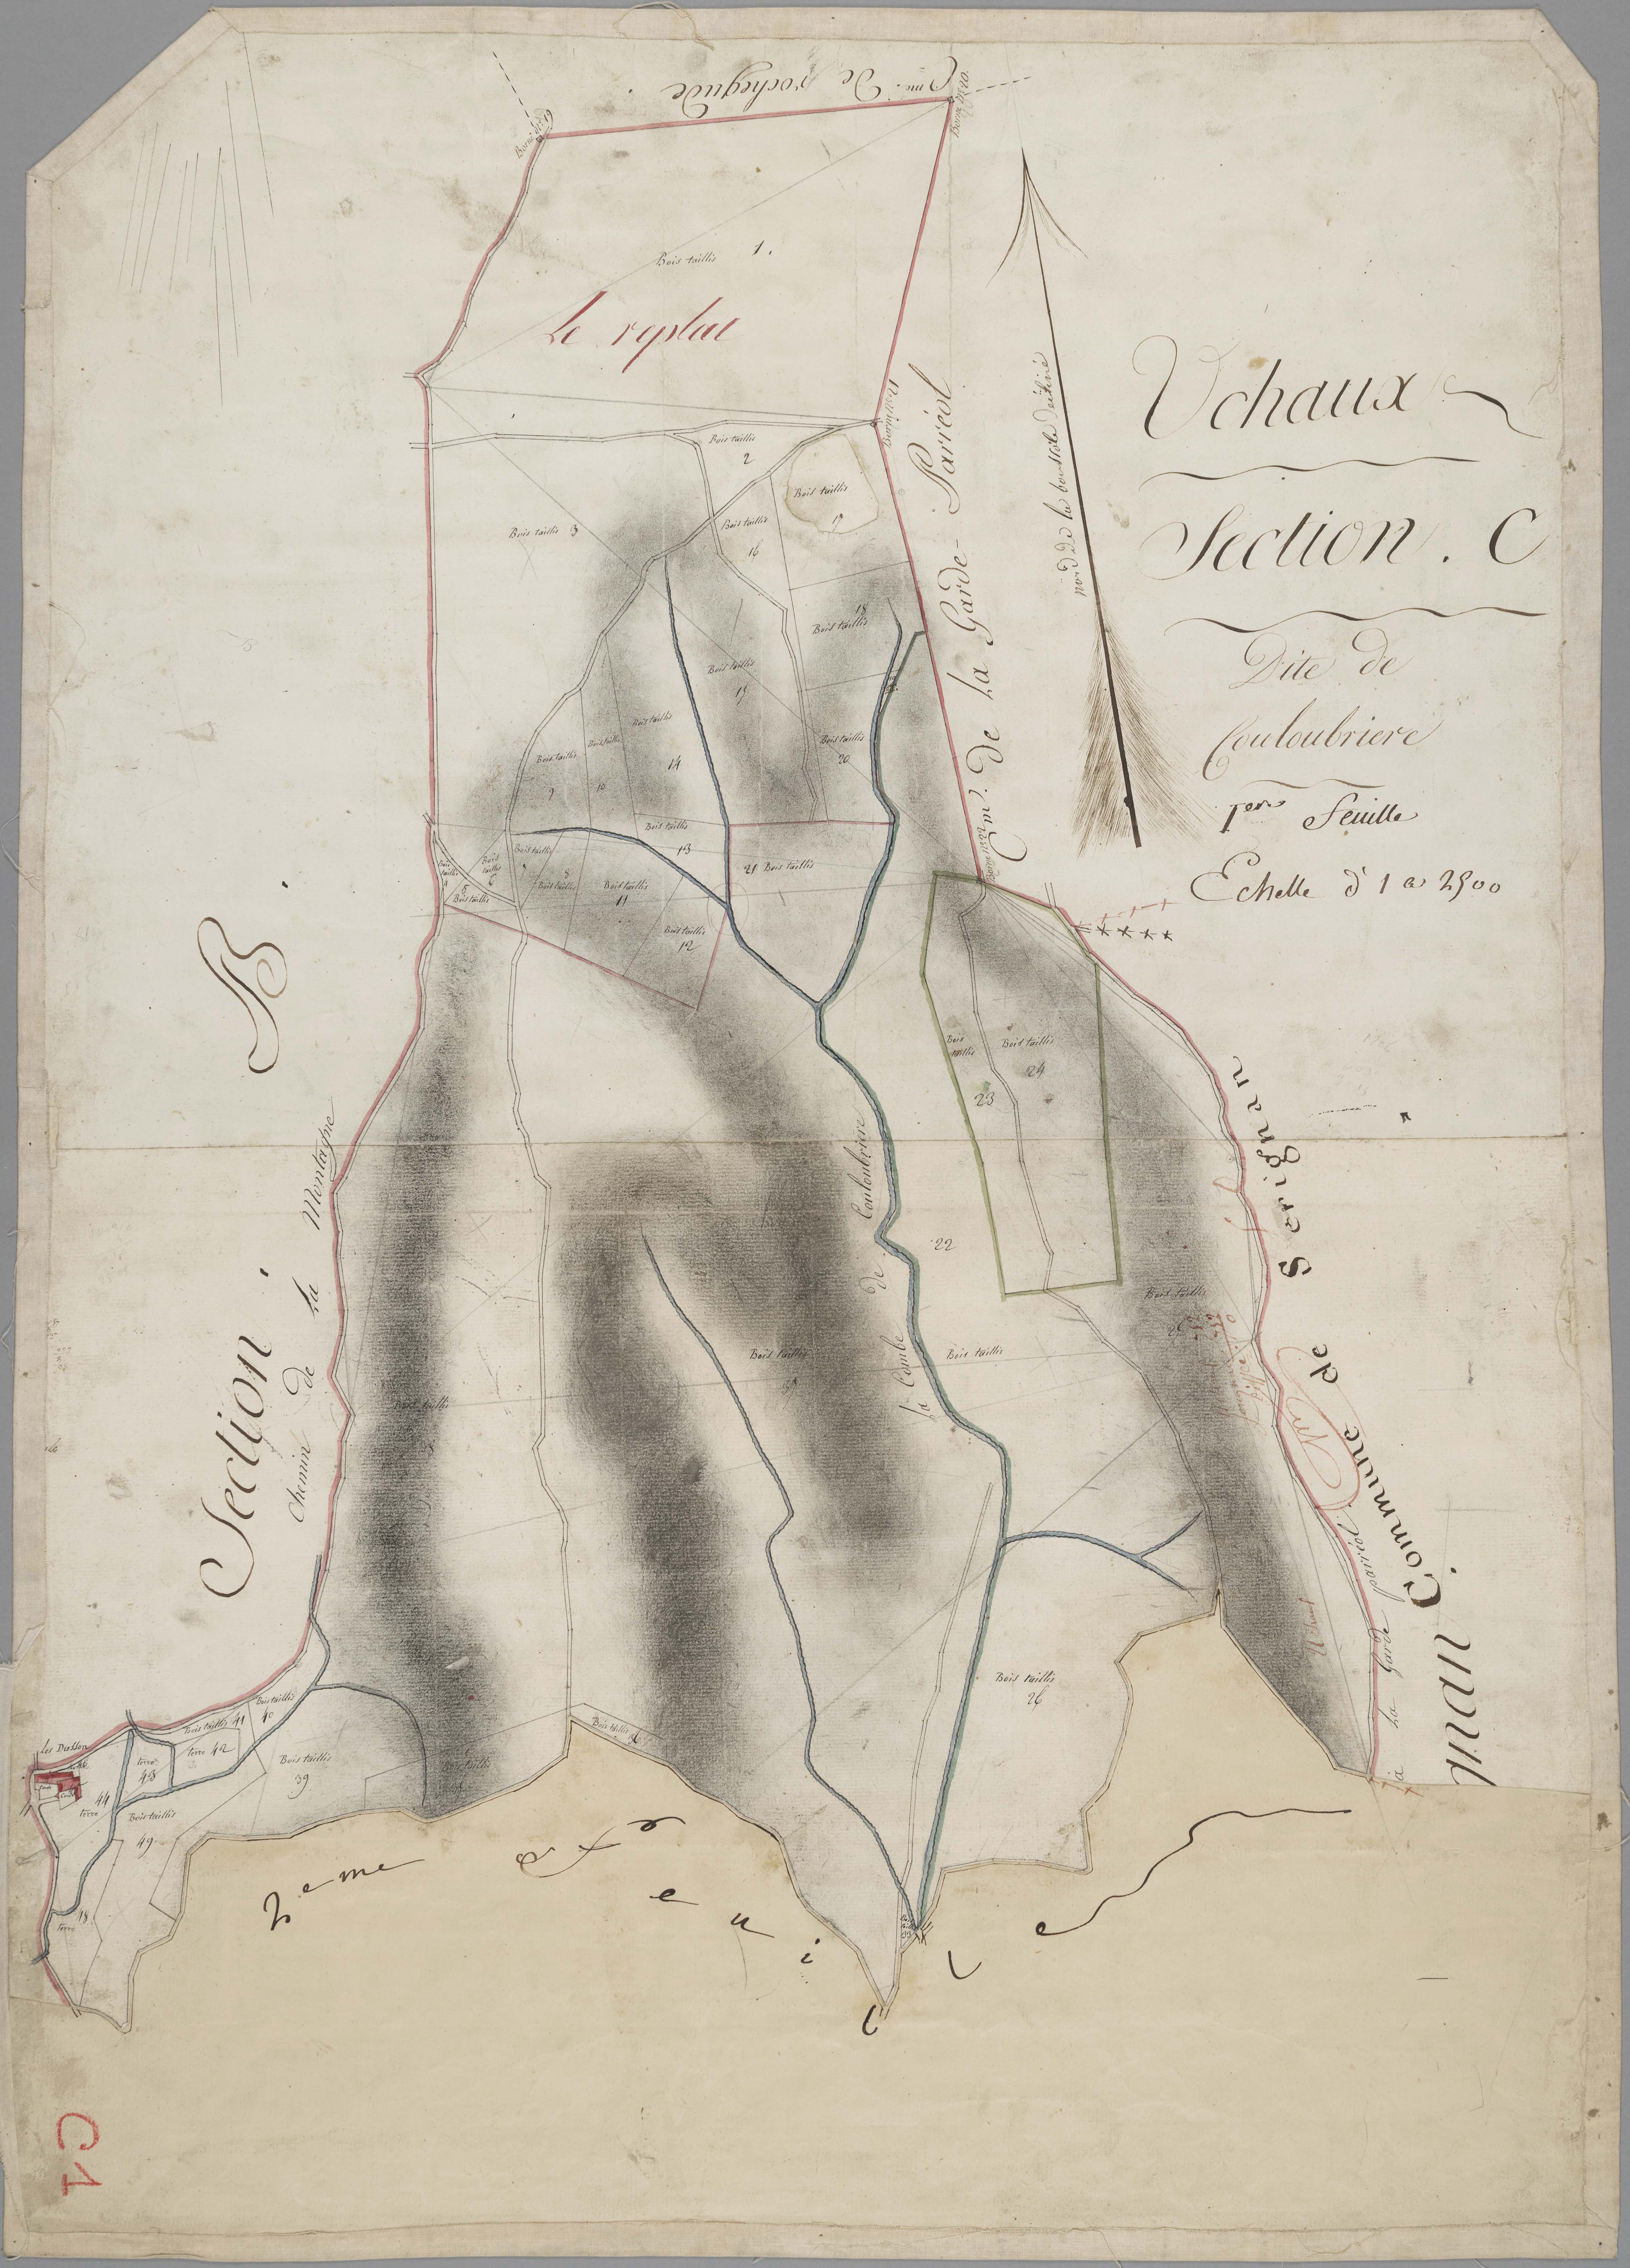 Cne. De rochegude.
Borne No. 9
Borne No. 10.
Bois taillis 1.
Le replat
Uchaux
Section. C
Dite de
Couloubriere
1ere feuille
Echelle d' 1 a 2500
nord de la boussole décliné
Cm. De La Garde-Parréol
Bois taillis
2
Bois taillis 3
Bois taillis
16
Bois taillis
17
Bois taillis
18
Bois taillis
19
Bois taillis
20
Bois taillis
14
Bois taillis
10
Bois taillis
9
Bois taillis
13
21 Bois taillis
Bois taillis
4
5
Bois taillis
Bois taillis
6
Bois taillis
Bois taillis
8
Bois taillis
11
Bois taillis
12
B
Section
Chemin de La Montagne
Bois taillis
23
Bois taillis
24
22
Bois taillis
La Combe de Couloubriere
Bois taillis
Bois taillis
Bois taillis
Commune de Serignan
à La Garde parréol
Uchaux
Bois taillis
26
Bois taillis
Bois taillis
Bois taillis
40
Bois taillis 41
terre 42
terre
43
44
terre
Bois taillis
39
Bois taillis
49
terre
48
Les Dusson
2eme feuille
C1